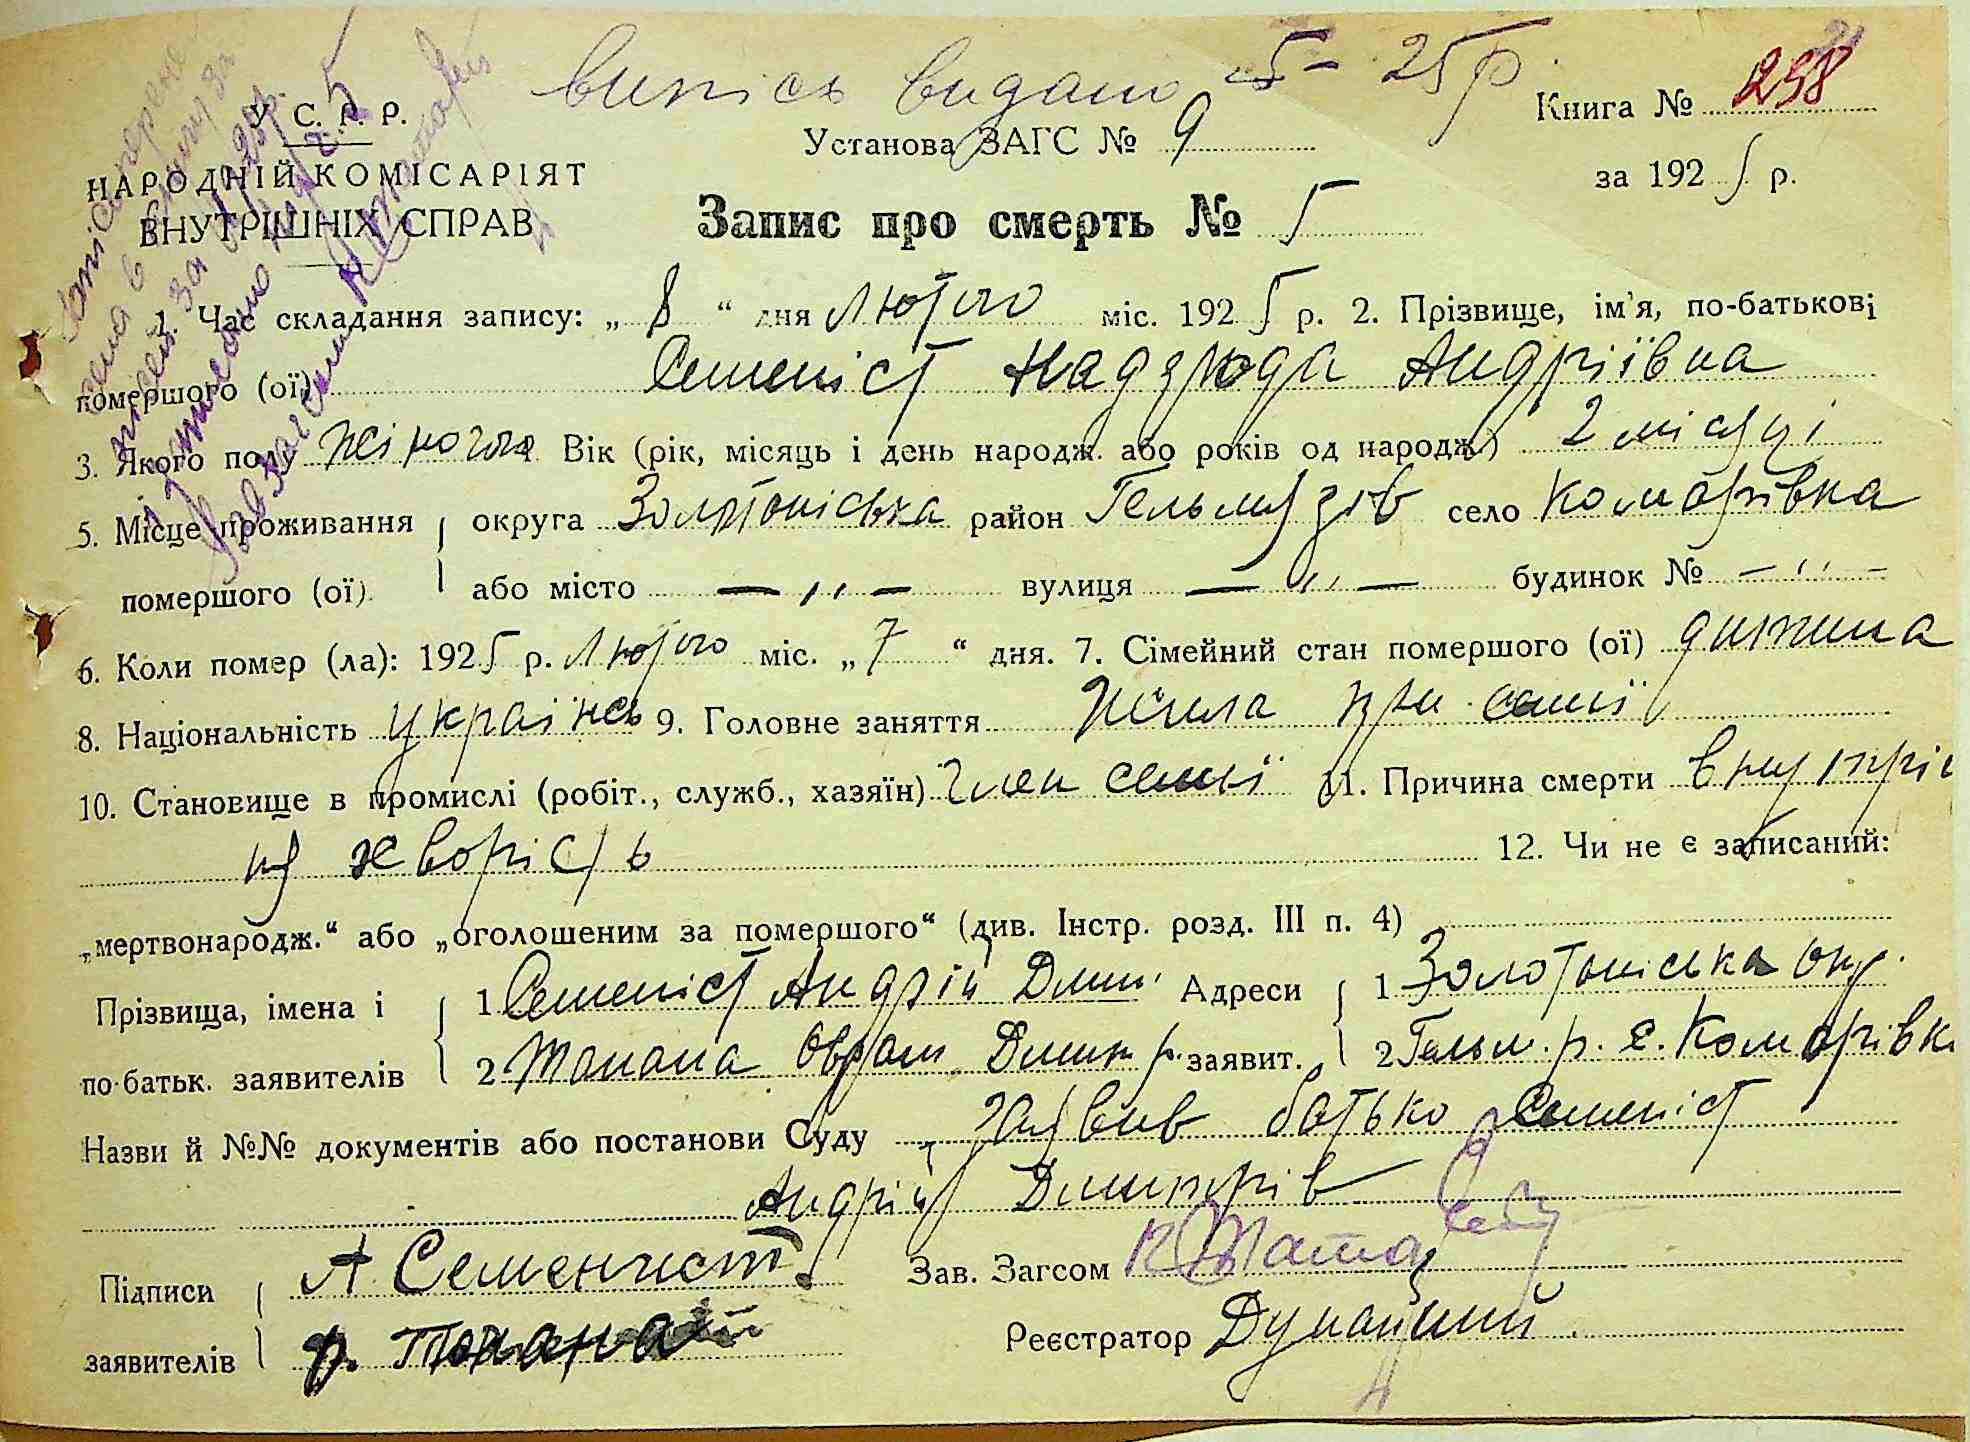 випісь видано 5 - 25 р.
У. С. Р. Р.
НАРОДНІЙ КОМІСАРІЯТ
ВНУТРІШНІХ СПРАВ
Установа ЗАГС № 9
Книга № 258
за 1925 р.
Запис про смерть № 5
1. Час складання запису: „ 8 “ дня Лютого міс. 1925 р. 2. Прізвище, ім'я, по-батькові
помершого (ої) Семеніст Андріївна
3. Якого полу жіночого Вік (рік, місяць і день народж. або років од народж.) 2 місяці
5. Місце проживання округа Золотоніська район Гельмязів село Комарівка
помершого (ої) або місто — „ — вулиця — „ — будинок № — „ —
6. Коли помер (ла): 1925 р. Лютого міс. „ 7 “ дня. 7. Сімейний стан помершого (ої) дитина
8. Національність українсь 9. Головне заняття Жила при семії
10. Становище в промислі (робіт., служб., хазяїн) Член семьї 11. Причина смерти внутріш
ня хворість 12. Чи не є записаний:
„мертвонародж.“ або „оголошеним за помершого“ (див. Інстр. розд. III п. 4)
Прізвища, імена і 1 Семеніст Андрій Дмит. Адреси 1 Золотоніська окр.
по-батьк. заявителів 2 Топана Оврам Дмитр. заявит. 2 Гельм. р. с. Комарівка
Назви й №№ документів або постанови Суду заявив батько Семеніст
Андрій Дмитрів
Підписи А Семенист Зав. Загсом
заявителів Топана Реєстратор Дунацкий